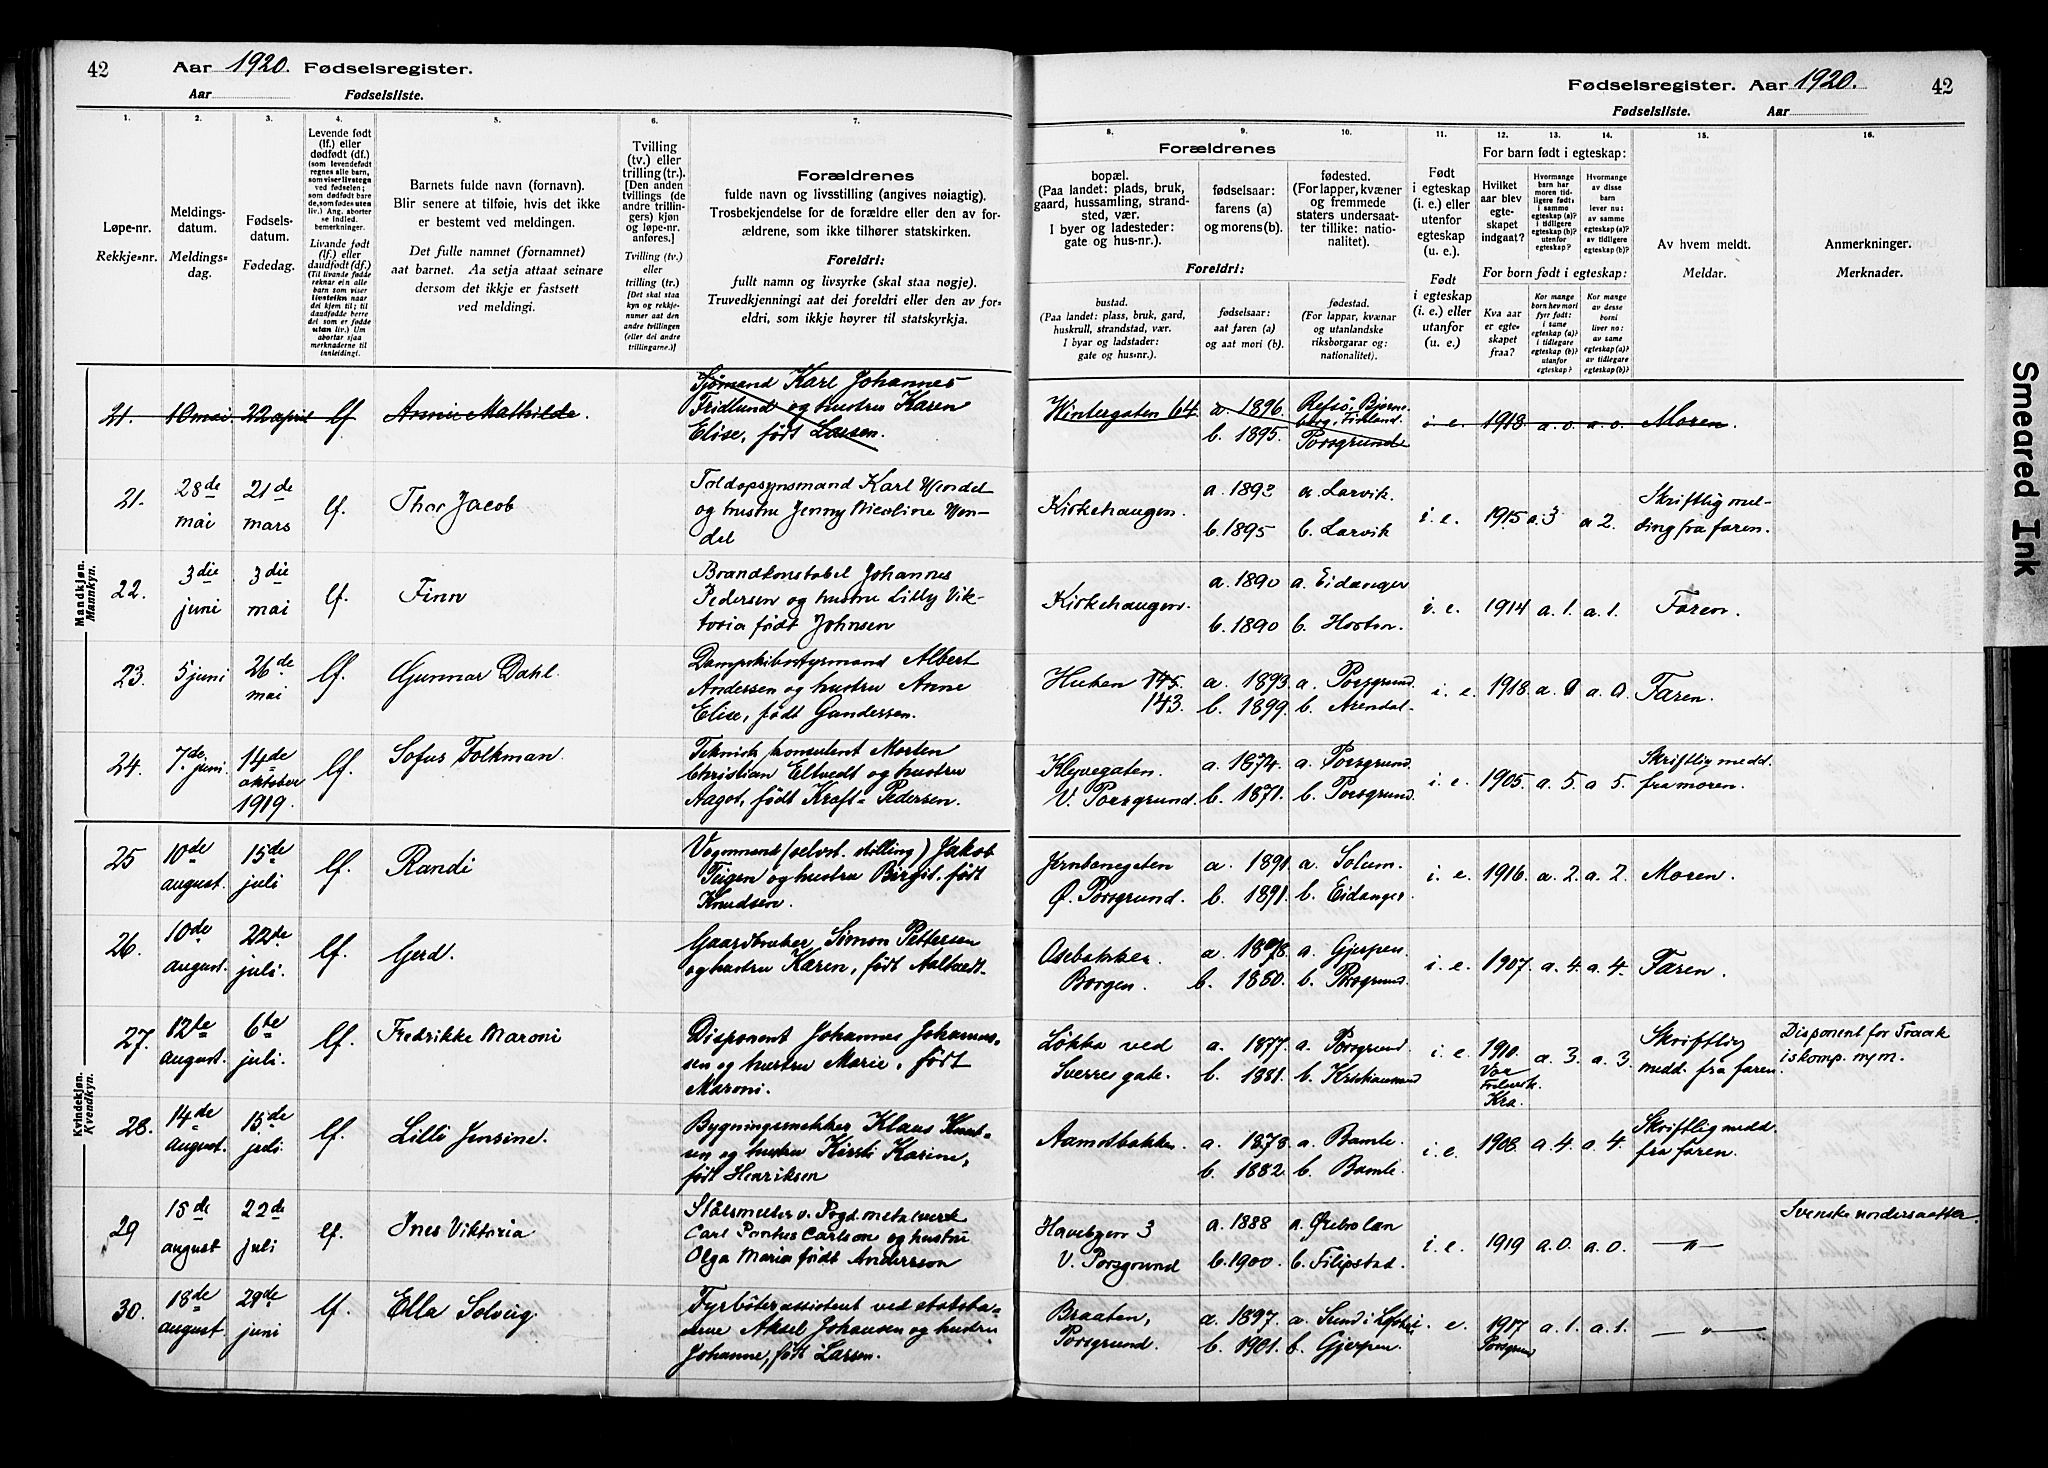 42 Aar 1920. Fødselsregister.
Aar Fødselsliste.
Fødselsregister. Aar 1920. 42
Fødselsliste. Aar
1. 2. 3. 4. 5. 6. 7. 8. 9. 10. 11. 12. 13. 14. 15. 16.
Løpe-nr.
Rekkje-nr.
Meldings-
datum.
Meldings-
dag.
Fødsels-
datum.
Fødedag.
Levende født
(lf.) eller
dødfødt (df.)
Livande født
(lf.) eller
daudfødt (df.)
Barnets fulde navn (fornavn).
Blir senere at tilføie, hvis det ikke
er bestemt ved meldingen.
Det fulle namnet (fornamnet)
aat barnet. Aa setja attaat seinare
dersom det ikkje er fastsett
ved meldingi.
Tvilling
(tv.) eller
trilling (tr.)
[Den anden
tvillings (de
andre trillin-
gers) kjøn
og løpe-nr.
anføres.]
Tvilling (tv.)
eller
trilling (tr.)
Forældrenes
fulde navn og livsstilling (angives nøiagtig).
Trosbekjendelse for de forældre eller den av for-
ældrene, som ikke tilhører statskirken.
Foreldri:
fullt namn og livsyrke (skal staa nøgje).
Truvedkjenningi aat dei foreldri eller den av for-
eldri, som ikkje høyrer til statskyrkja.
Forældrenes
bopæl.
(Paa landet: plads, bruk,
gaard, hussamling, strand-
sted, vær.
I byer og ladesteder:
gate og hus-nr.).
Foreldri:
bustad.
(Paa landet: plass, bruk, gard,
huskrull, strandstad, vær.
I byar og ladstader:
gate og hus-nr.).
fødselsaar:
farens (a)
og morens (b).
fødselsaar:
aat faren (a)
og aat mori (b).
fødested.
(For lapper, kvæner
og fremmede
staters undersaat-
ter tillike: natio-
nalitet).
fødestad.
(For lappar, kvænar
og utanlandske
riksborgarar og:
nationalitet).
Født
i egteskap
(i. e.) eller
utenfor
egteskap
(u. e.).
Født
i egteskap
(i. e.) eller
utanfor
(u. e.).
For barn født i egteskap:
Hvilket
aar blev
egte-
skapet
indgaat?
For born født i egteskap:
Kva aar
er egte-
skapet
fraa?
Av hvem meldt.
Meldar.
Anmerkninger.
Merknader.
Mandkjøn.
Mannkyn.
21. 10 mai. 22 april lf Annie Mathilde. Sjømand Karl Johannes
Fridlund og hustru Karen
Elise, født Larsen. Wintergaten 64 a. 1896.
b. 1895. Refsö, Bjørne-
borg, Finland
Porsgrund i. e. 1918. a. 0. a. 0. Moren.
21. 28de
mai 21de
mars lf. Thor Jacob Toldopsynsmand Karl Wendel
og hustru Jenny Nicoline Wen-
del Kirkehaugen. a. 1893
b. 1895 a. Larvik.
b. Larvik i. e. 1915 a. 3 a 2. Skriftlig mel-
ding fra faren.
22. 3die
juni 3die
mai lf. Finn Brandkonstabel Johannes
Pedersen og hustru Lilly Vik-
toria født Johnsen Kirkehaugen. a. 1890
b. 1890 a. Eidanger
b. Horten. i. e. 1914 a. 1. a. 1. Faren.
23. 5 juni 26de
mai lf. Gunnar Dahl. Dampskibsstyrmand Albert
Andersen og hustru Anne
Elise, født Gundersen. Huken 145.
143. a. 1893.
b. 1899. a. Porsgrund.
b. Arendal. i. e. 1918. a. 0 a. 0. Faren.
24. 7de juni. 14de
oktober
1919. lf. Sofus Folkman. Teknisk konsulent Morten
Christian Eltvedt og hustru
Aagot, født Kraft-Pedersen. Klyvegaten.
V. Porsgrund. a. 1874.
b. 1871. a. Porsgrund.
b. Porsgrund. i. e. 1905. a. 5. a. 5. Skriftlig medd.
fra moren.
Kvindekjøn.
Kvendkyn.
25 10de
august. 15de
juli lf. Randi Vognmand (selvst. stilling) Jakob
Teigen og hustru Birgit, født
Knudsen. Jernbanegaten
Ø. Porsgrund. a. 1891.
b. 1891. a. Solum.
b. Eidanger. i. e. 1916. a. 2. a. 2. Moren.
26. 10de
august. 22de
juli. lf. Gerd. Gaardbruker Simon Pettersen
og hustru Karen, født Aaltvedt. Osebakken.
Borgen. a. 1878.
b. 1880. a. Gjerpen.
b. Porsgrund. i. e. 1907. a. 4. a. 4. Faren.
27. 12te
august. 6te
juli. lf. Fredrikke Maroni Disponent Johannes Johannes-
sen og hustru Marie, født
Maroni. Løkka ved
Sverres gate. a. 1877.
b. 1881. a. Porsgrund.
b. Kristiansund i. e. 1910.
Kra. a. 3. a. 3. Skriftlig
medd. fra faren. Disponent for Traak
iskomp. m m.
28. 14de
august. 15de
juli. lf. Lilli Jensine. Bygningssnekker Klaus Knut-
sen og hustru Kirsti Karine,
født Henriksen Aamotbakken. a. 1878.
b. 1882. a. Bamle.
b. Bamle. i. e. 1908. a. 4. a. 4. Skriftlig medd.
fra faren.
29 15de
august 22de
juli lf. Ines Viktoria Stålsmelter v. Psgd. metalverk
Carl Pontus Carlson og hustru
Olga Maria født Andersson Havebyen 3
V. Porsgrund a. 1888
b. 1900. a. Ørebro län
b. Filipstad. i. e. 1919 a. 0. a. 0. — " — Svenske undersaatter.
30. 18de
august. 29de
juni lf. Ella Solveig Fyrbøterassistent ved statsba-
nerne Aksel Johansen og hustru
Johanne, født Larsen. Braaten,
Porsgrund. a. 1897.
b. 1901. a. Sund i Lofoten
b. Gjerpen. i. e. 1917
Porsgrund a. 1. a. 1. — " —
Smeared Ink